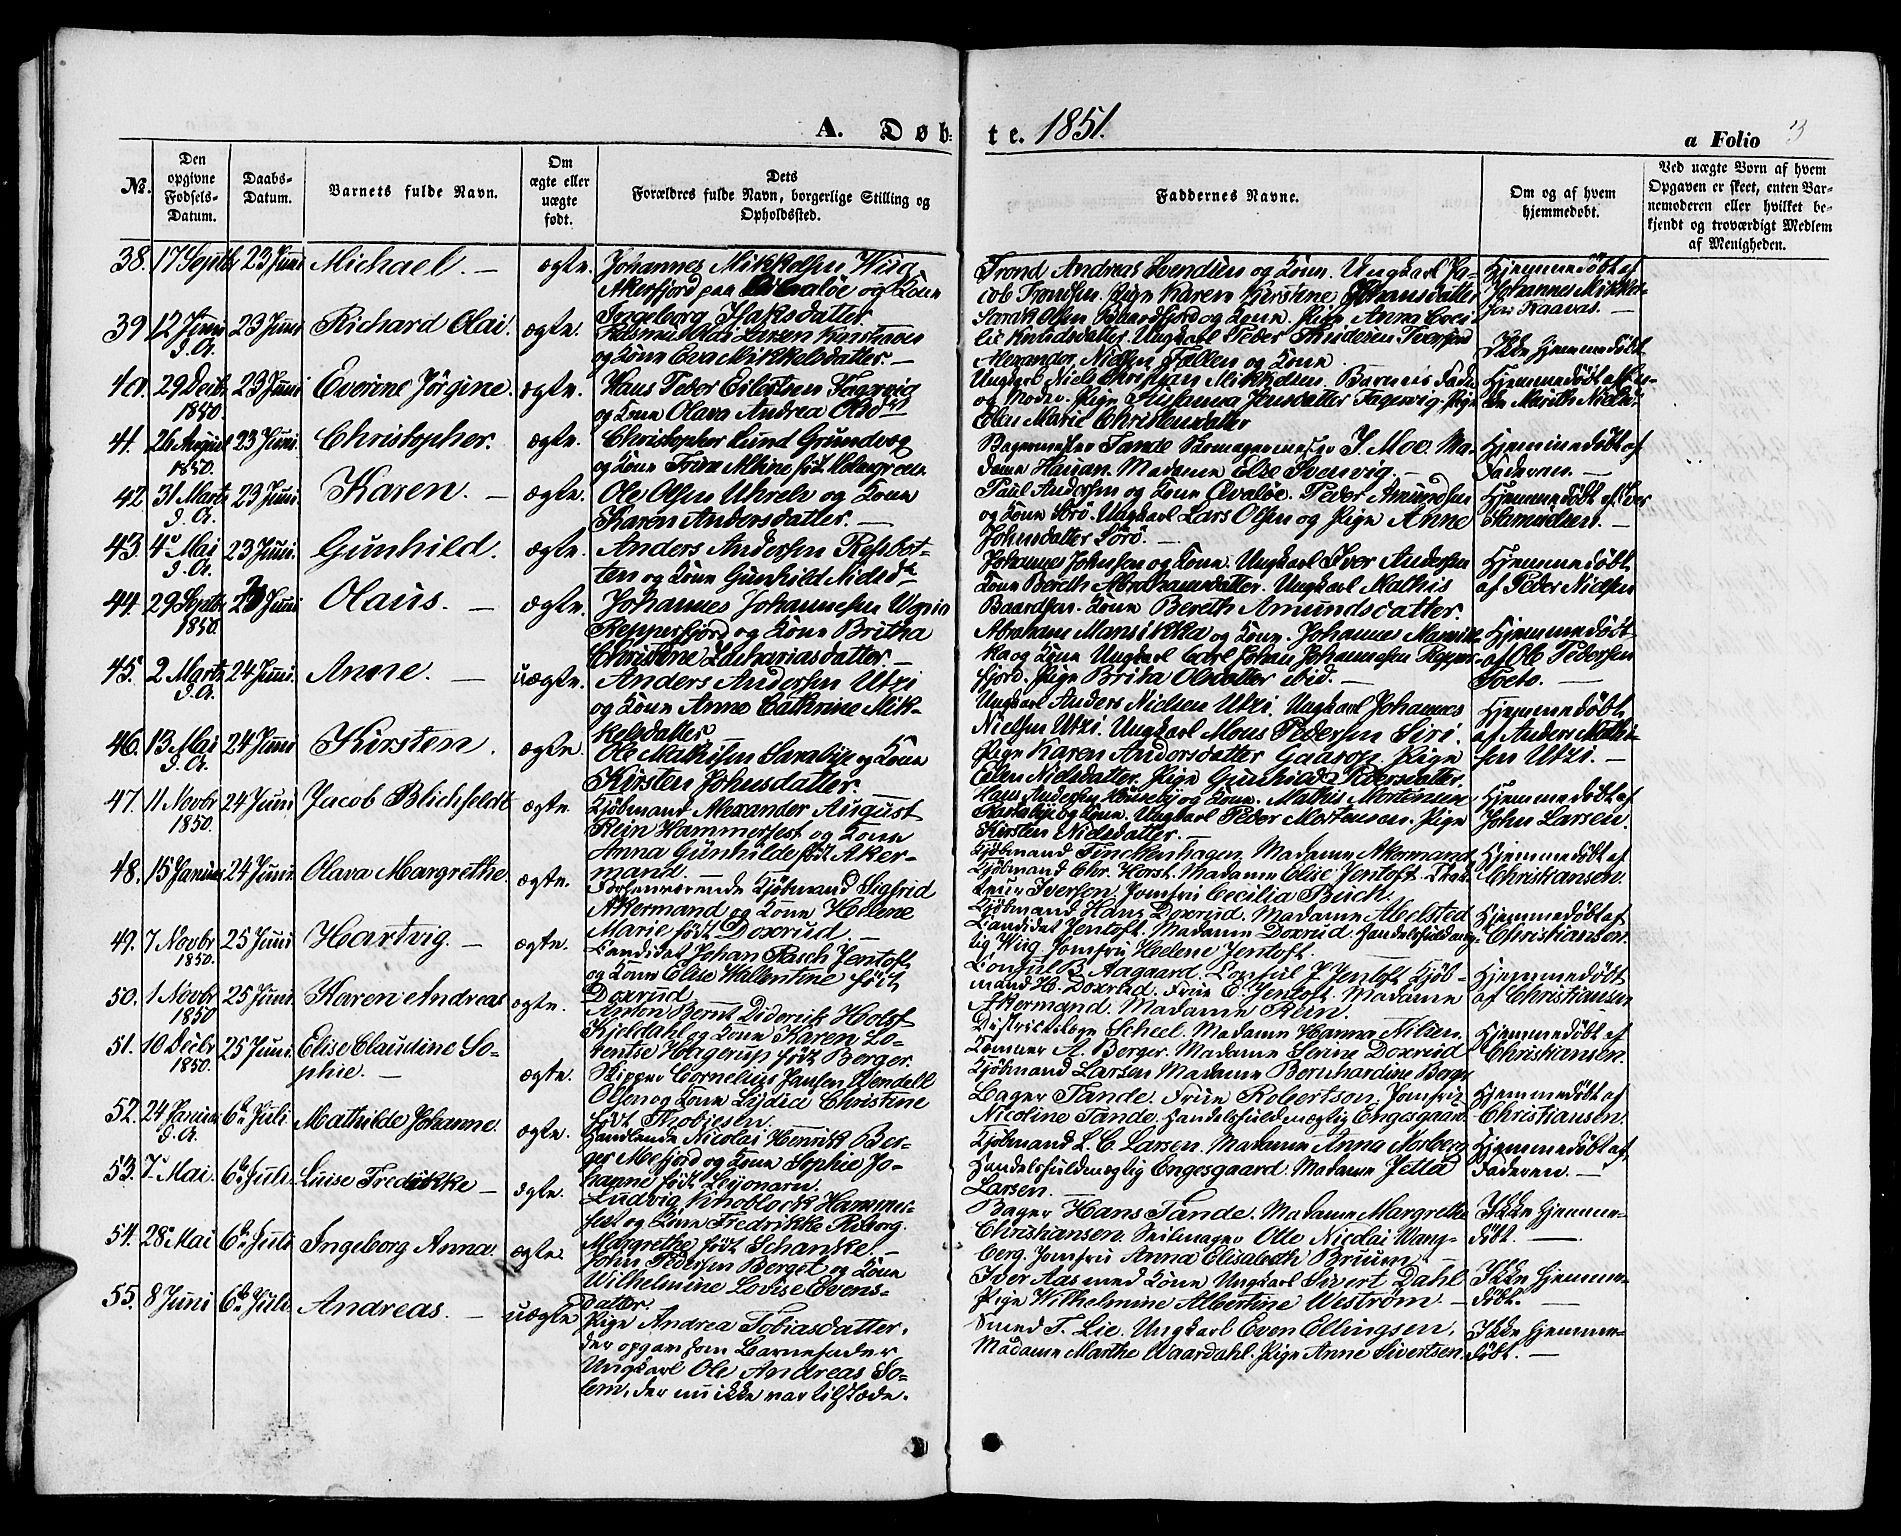 A. Døb-
te. 1851.
a Folio 3
No.
Den opgivne Fødsels-Datum.
Daabs-Datum.
Barnets fulde Navn.
Om ægte eller uægte født.
Dets Forældres fulde Navn, borgerlige Stilling og Opholdssted.
Faddernes Navne.
Om og af hvem hjemmedøbt.
Ved uægte Børn af hvem Opgaven er skeet, enten Barnemoderen eller hvilket bekjendt og troværdigt Medlem af Menigheden.
38. 17 Septbr 23 Juni Michael. — ægte. Johannes Mikkelsen Wiig
Akerfjord paa og Kone
Ingeborg Isaksdatter.
Trond Andreas Svendsen og Kone. Ungkarl Ja-
cob Trondsen. Pige Karen Kirstine Johansdatter
Hjemmedøbt af
Johannes Mikkel-
39 12 Juni d. A. 23 Juni Richard Olai. ægte. Larsen
og Kone Eva Mikkelsdatter. —
Sarak Olsen og Kone. Pige Anna Ceci-
lie Knudsdatter. Ungkarl Peder
Alexander Nielsen og Kone
Ikke hjemmedøbt
40. 29 Decbr 1850 23 Juni Everine Jørgine. ægte. Hans Peder Eilertsen
og Kone Olava Andrea
Ungkarl Niels Christian Mikkelsen. Barnets Fader
og Moder. Pige Susanna Jensdatter
Elen Marie Christensdatter
Hjemmedøbt af
Marith Niels
41. 26 August 1850. 23 Juni. Christopher. ægte. Christopher Lund Grundvog
og Kone Trine født
Bagermester Tande J. Moe. Ma-
dame Hauan. Madame Else
Hjemmedøbt af
Faderen. —
42 31 Marts d. A. 23 Juni Karen. — ægte. Ole Olsen og Kone
Karen Andersdatter. —
Paul Andersen og Kone Qvaløe. Peder Amundsen
og Kone Sørø. Ungkarl Lars Olsen og Pige Anne
Johnsdatter Sørø. —
Hjemmedøbt af Iver
Samuelsen. —
43. 4 Mai d. A. 23 Juni. Gunhild. ægte. Anders Andersen Repbot-
ten og Kone Gunhild Nielsd
Johannes Johnsen og Kone. Ungkarl Iver Andersen
Kone Bereth Abrahamsdatter. Ungkarl Mathis
Baardsen. Kone Bereth Amundsdatter.
Hjemmedøbt
af Peder Nielsen
44. 29 Septbr 1850. 23 Juni Olaus. — ægte. Johannes Johannesen
Repperfjord og Kone Britha
Christine Zachariasdatter. —
Abraham Mansikka og Kone. Johannes Mansik-
ka og Kone Ungkarl Carl Johan Johannesen Repper-
fjord. Pige Brita Olsdatter ibid. —
Hjemmedøbt
af Ole Pedersen
45. 2 Marts d. A. 24 Juni. Anne. — uægte. Anders Andersen Utzi
og Kone Anne Cathrine Mik-
kelsdatter
Ungkarl Anders Nielsen Utzi. Ungkarl Johannes
Nielsen Utzi. Ungkarl Mons Pedersen Siri.
Pige Karen Andersdatter Pige
Elen Nielsdatter. Pige Gunhild Pedersdatter.
Hjemmedøbt
af Anders Mathi-
sen Utzi. —
46. 13 Mai d. A. 24 Juni Kirsten. ægte. Ole Mathisen Sarabye og Kone
Kirsten Johnsdatter.
Hans Andersen og Kone. Mathis Mortensen
og Kone. Ungkarl Peder Mortensen. Pige
Kirsten Nielsdatter. —
Hjemmedøbt af
John Larsen.
47. 11 Novbr 1850. 24 Juni Jacob Blichfeldt ægte. Kjøbmand Alexander August
Rein Hammerfest og Kone
Anna Gunhilde født Aker-
mand. —
Kjøbmand Finckenhagen. Madame Akermand
Kjøbmand Chr. Horst. Madame Elise Jentoft.
Iversen. Jomfru Cecilia Buch.
Hjemmedøbt af
Christiansen.
48. 15 Januar 24 Juni Olava Margrethe. ægte. Forhenværende Kjøbmand Sigfrid
Akermand og Kone Helene
Marie født Doxrud. —
Kjøbmand Hans Doxrud. Madame Abelsted
Candidat Jentoft. Madame Doxrud. Handelsfuldmæg-
tig Wiig. Jomfru Helene Jentoft.
Hjemmedøbt af
Christiansen.
49. 7 Novbr 1850. 25 Juni Hartvig. — ægte. Candidat Johan Rasch Jentoft
og Kone Elise Wallentine født
Doxrud
Consul B. Aagaard. Consul J. Jentoft. Kjøb-
mand H. Doxrud. Frue E. Jentoft. Madame
Akermand. Madame Rein.
Hjemmedøbt
af Christiansen
50. 1 Novbr 1850 25 Juni. Karen Andreas ægte. Anton Bernt Diderik Holst
Kjeldahl og Kone Karen Lo-
rentse Hagerup født Berger.
Districtslæge Scheel. Madame Hanna Nilsen.
A. Berger. Madame Serine Doxrud
Kjøbmand Larsen Madame Bernhardine Berger
Hjemmedøbt af
Christiansen.
51. 10 Decbr 1850. 25 Juni. Elise Claudine So-
phie. — ægte. Skipper Cornelius Jansen Wendell
Olsen og Kone Lydia Christine
født Thobiesen.
Bager Tande. Frue Robertson. Jomfru
Nicoline Tande. Handelsfuldmægtig Engesgaard.
Hjemmedøbt af
Christiansen.
52. 24 Januar d. A. 6 Juli Mathilde Johanne. ægte. Handlende Nicolai Henrik Ber-
ger Mefjord og Kone Sophie Jo-
hanne født
Kjøbmand L. C. Larsen. Madame Anna Norberg
Handelsfuldmægtig Engesgaard. Madame Jetta
Larsen. —
Hjemmedøbt af
Faderen. —
53. 7 Mai. 6 Juli Luise Fredrikke — ægte. Ludvig Knoblock Hammer-
fest og Kone Fredrikke
Margrethe født Schanke. —
Bager Hans Tande. Madame Margrethe
Christiansen. Seilmager Ole Nicolai Wang-
berg. Jomfru Anna Elisabeth Bruun. —
Ikke hjemme-
døbt. —
54. 28 Mai 6 Juli Ingeborg Anna. ægte. John Pedersen Berget og Kone
Wilhelmine Lovise Evens-
datter.
Iver Aas med Kone Ungkarl Sivert Dahl
Pige Wilhelmine Albertine Westrøm. —
Ikke hjemme-
døbt. —
55. 8 Juni 6 Juli Andreas. — uægte. Pige Andrea Tobiasdatter,
der opgav som Barnefader
Ungkarl Ole Andreas So-
lem, der nu ikke var tilstede.
Smed T. Lie. Ungkarl Even Ellingsen.
Madame Marthe Waardahl. Pige Anne Sivertsen.
Ikke hjemme-
døbt. —